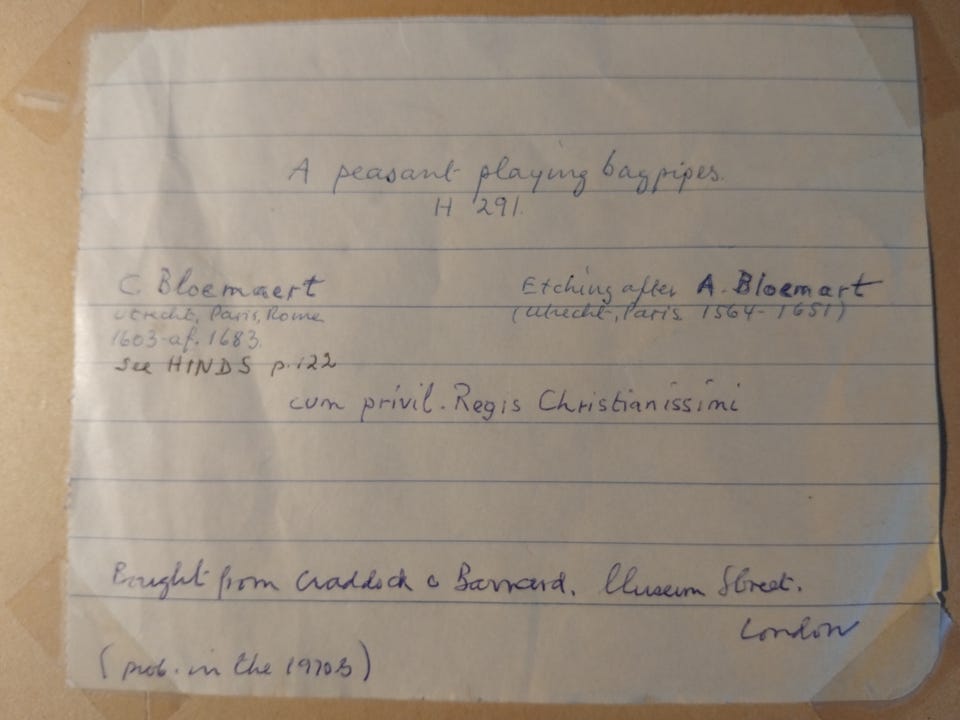 A peasant playing bagpipes.
H 291.
C Bloemaert
Utrecht, Paris, Rome
1603-af. 1683.
See HINDS p.122
Etching after A. Bloemart
(Utrecht, Paris 1564-1651)
cum privil. Regis Christianissimi
Bought from Craddock & Barnard. Museum Street.
London
(prob. in the 1970s)